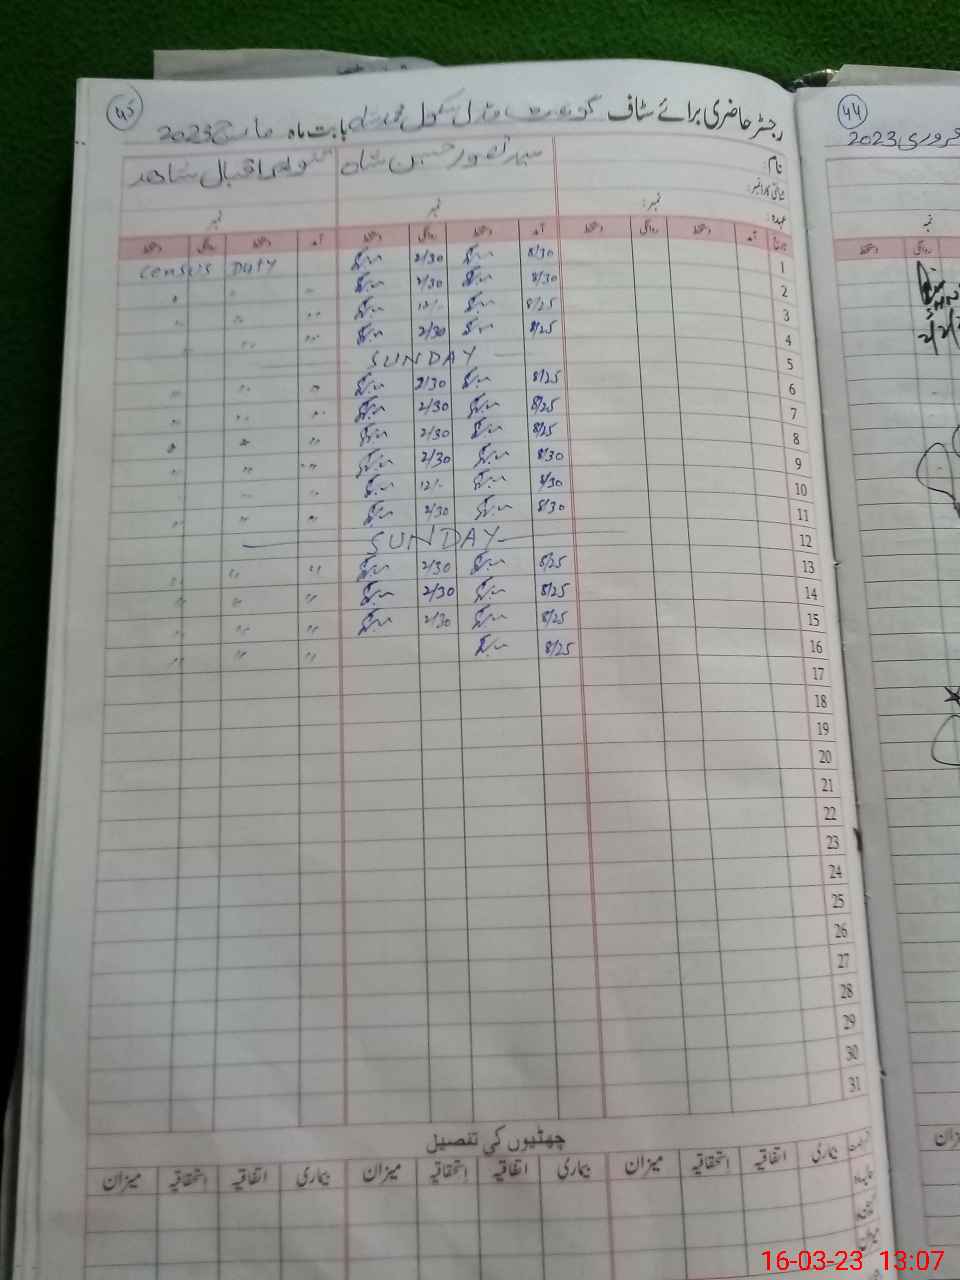 45
رجسٹر حاضری برائے سٹاف گورنمنٹ مڈل سکول محمد شاہ بابت ماہ مارچ 2023
نام: سید تصور حسین شاہ اقبال شاھد
شناختی کارڈ نمبر:
عہدہ: نمبر: نمبر نمبر
تاریخ آمد دستخط روانگی دستخط آمد دستخط روانگی دستخط آمد دستخط روانگی دستخط
1 8/30 2/30 Census Duty
2 8/30 2/30 " " "
3 8/25 12/- " " "
4 8/25 2/30 " " "
5 SUNDAY
6 8/25 2/30 " " "
7 8/25 2/30 " " "
8 8/25 2/30 " " "
9 8/30 2/30 " " "
10 8/30 12/- " " "
11 8/30 2/30 " " "
12 SUNDAY
13 8/25 2/30 " " "
14 8/25 2/30 " " "
15 8/25 2/30 " " "
16 8/25 " " "
17
18
19
20
21
22
23
24
25
26
27
28
29
30
31
چھٹیوں کی تفصیل
بیماری اتفاقیہ استحقاقیہ میزان بیماری اتفاقیہ استحقاقیہ میزان بیماری اتفاقیہ استحقاقیہ میزان
میزان
44
فروری 2023
نمبر
روانگی دستخط
میزان
16-03-23 13:07